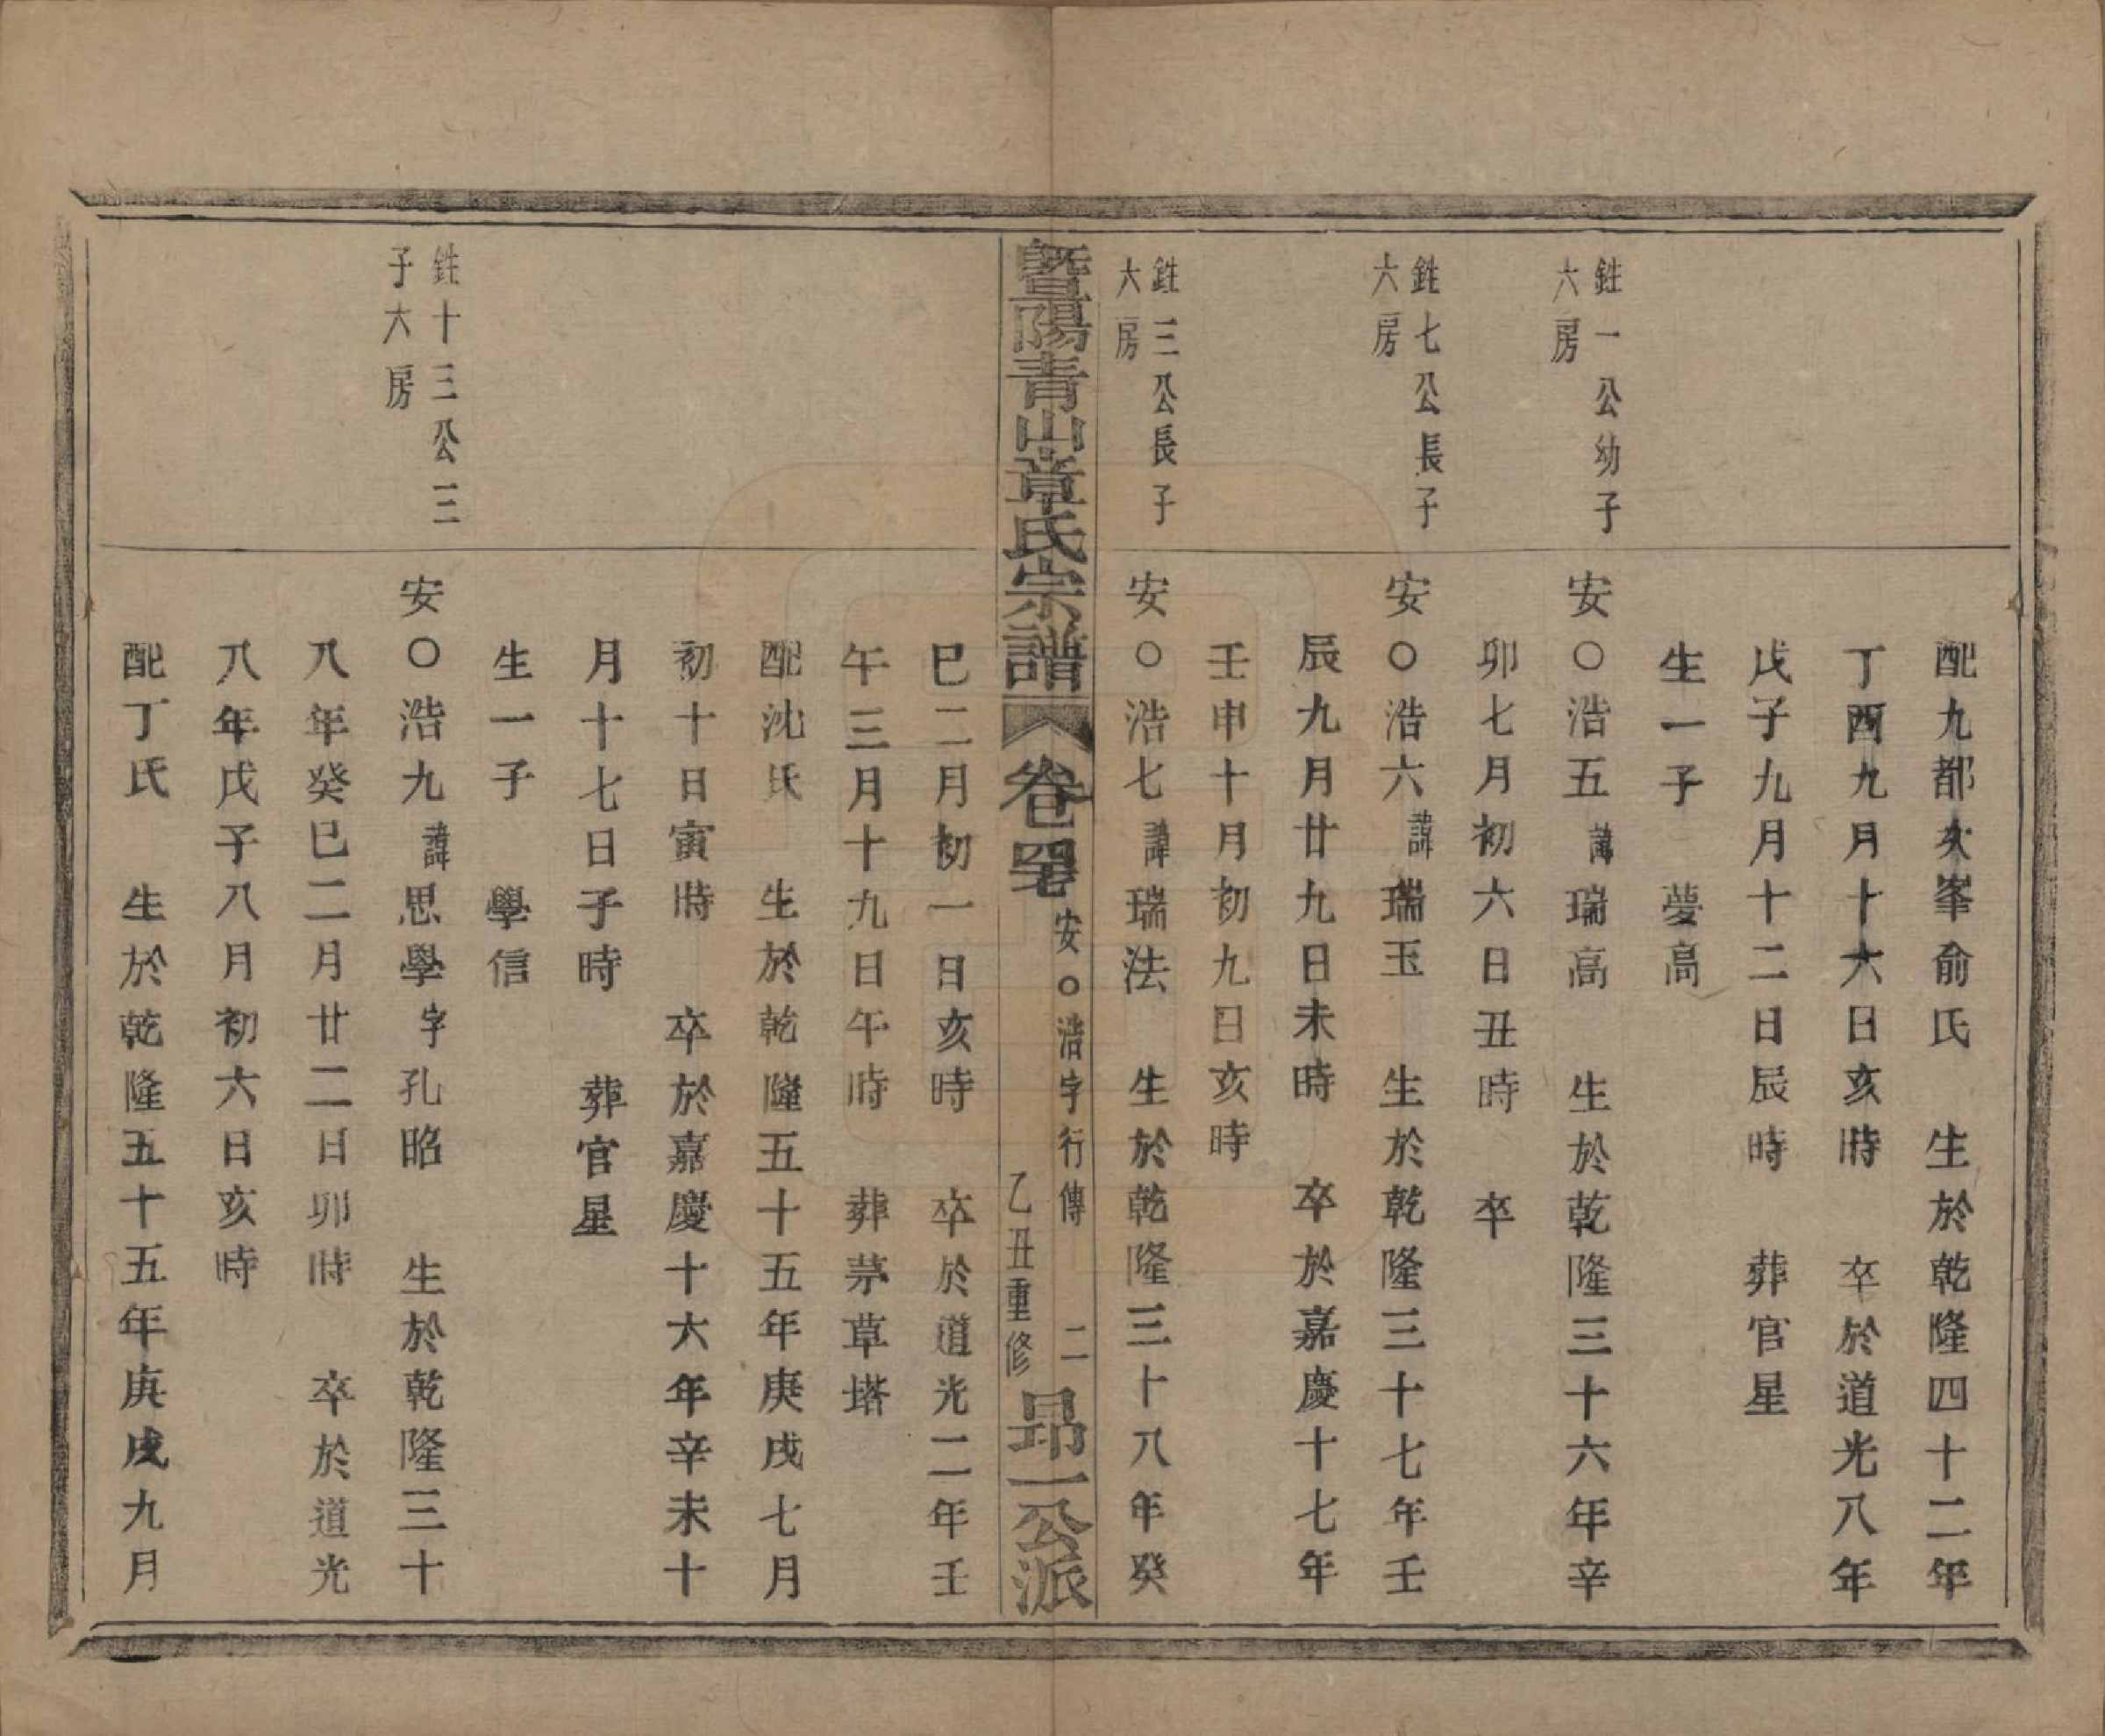 配九都火峯俞氏　生於乾隆四十二年
丁酉九月十六日亥時　卒於道光八年
戊子九月十二日辰時　葬官星
生一子　夢高
鉎一公幼子
六房
安〇浩五諱瑞高　生於乾隆三十六年辛
卯七月初六日丑時　卒
鉎七公長子
六房
安〇浩六諱瑞玉　生於乾隆三十七年壬
辰九月廿九日未時　卒於嘉慶十七年
壬申十月初九日亥時
鉎三公長子
大房
安〇浩七諱瑞法　生於乾隆三十八年癸
暨陽青山章氏宗譜
卷罣
安〇浩字行傳　二
乙丑重修
昻一公派
巳二月初一日亥時　卒於道光二年壬
午三月十九日午時　葬茅草塔
配沈氏　生於乾隆五十五年庚戌七月
初十日寅時　卒於嘉慶十六年辛未十
月十七日子時　葬官星
生一子　學信
鉎十三公三
子六房
安〇浩九諱思學字孔昭　生於乾隆三十
八年癸巳二月廿二日卯時　卒於道光
八年戊子八月初六日亥時
配丁氏　生於乾隆五十五年庚戌九月